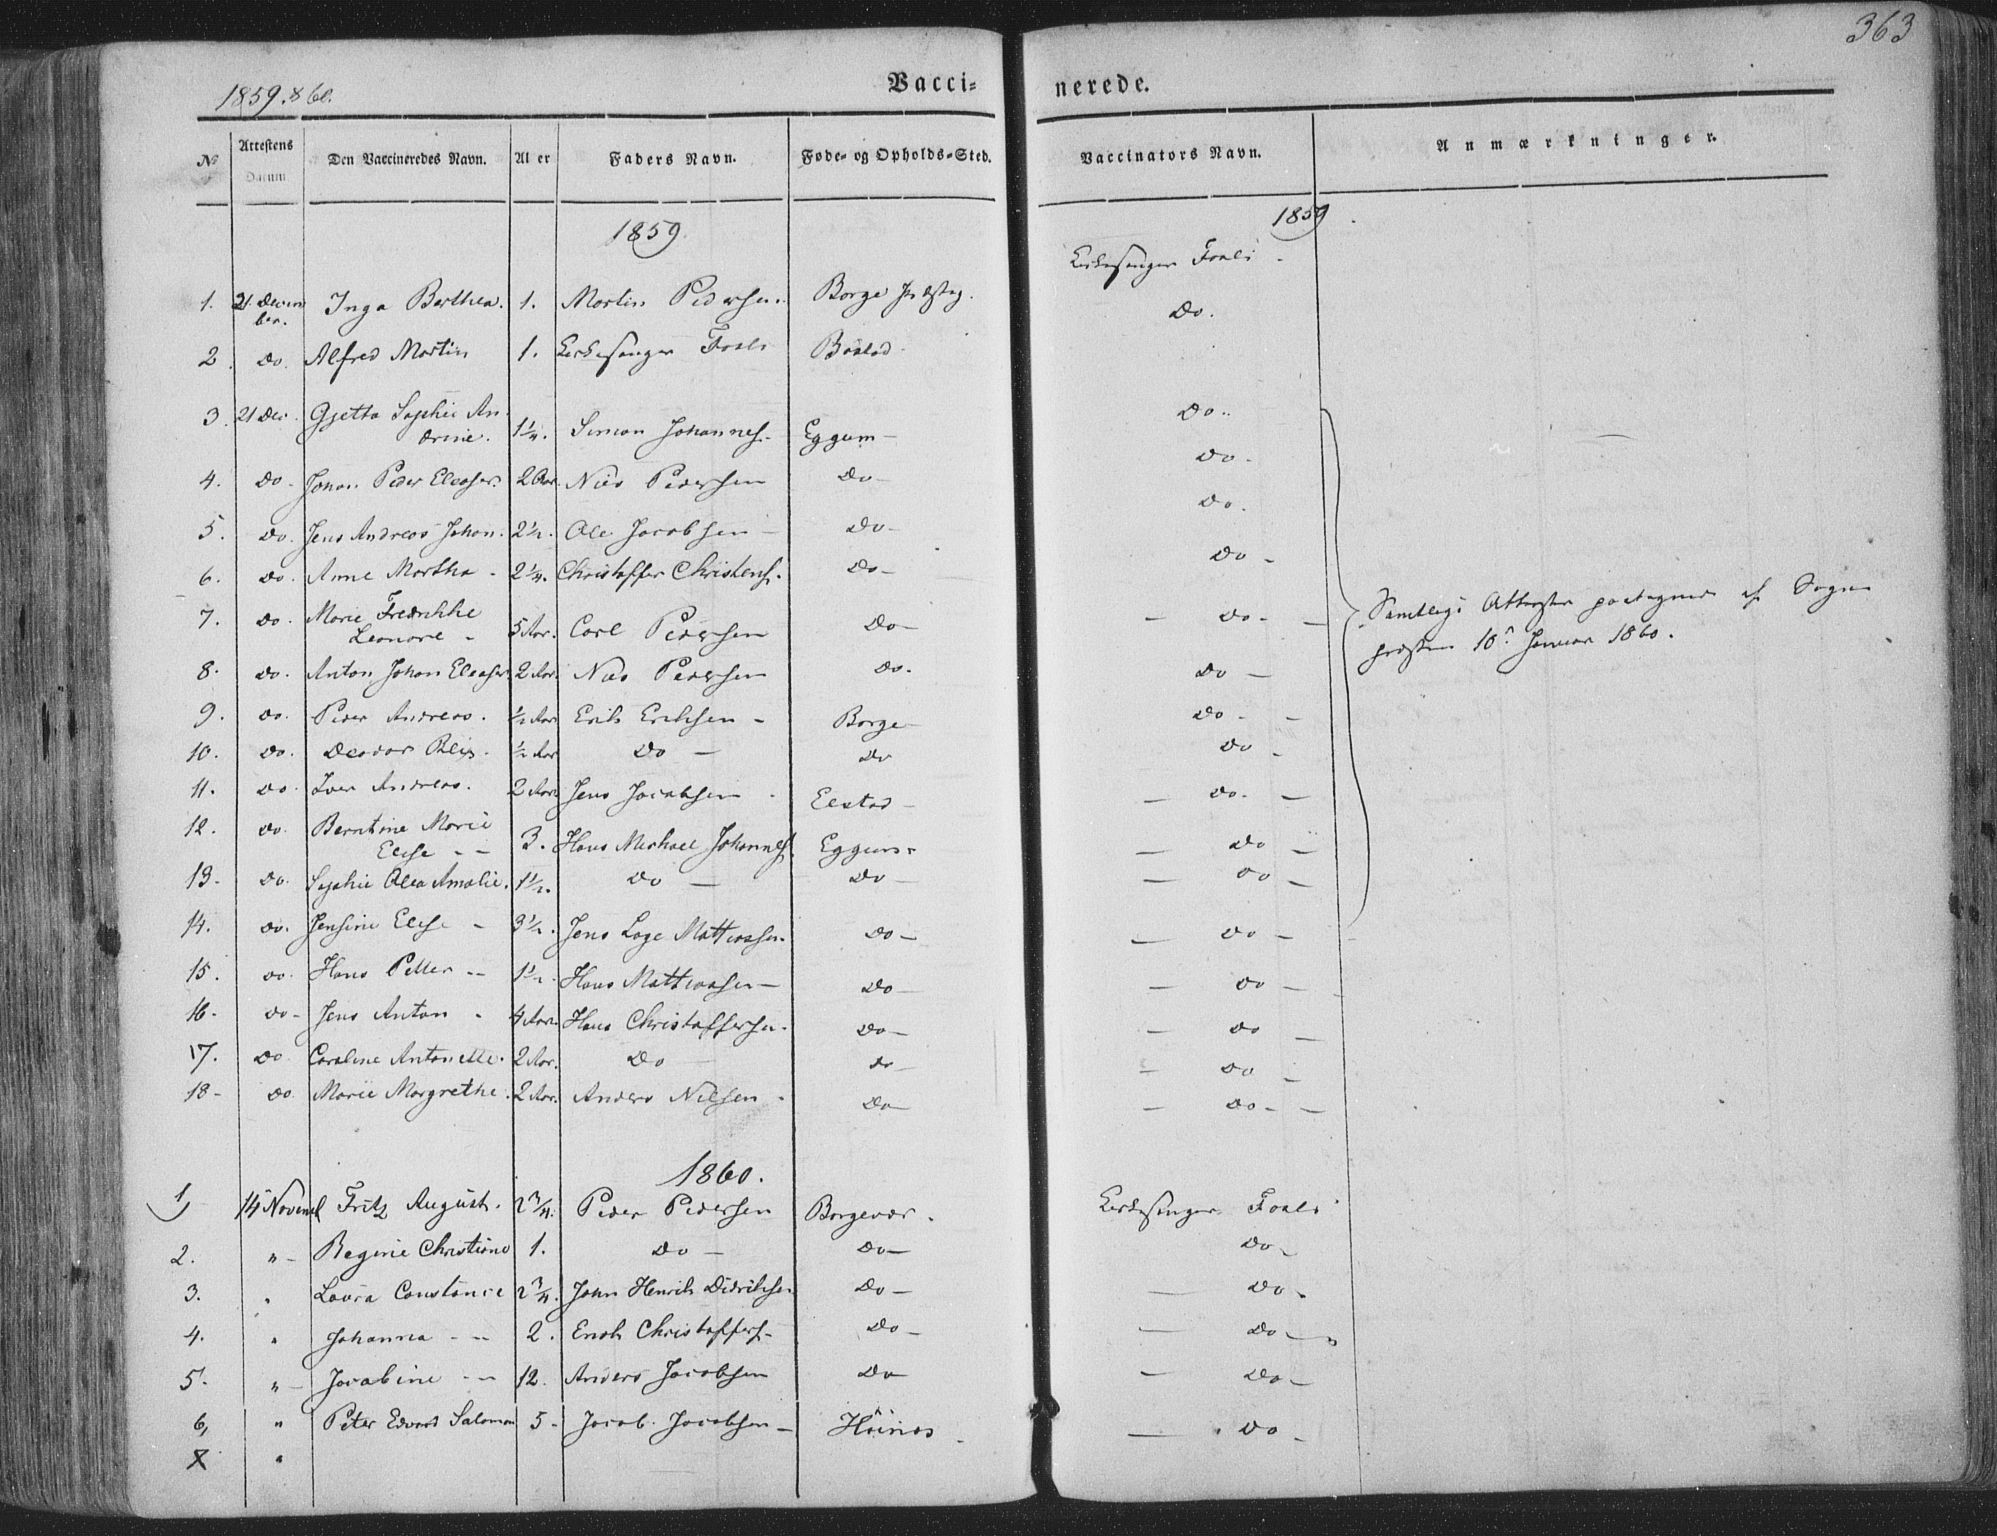 363
1859. & 60.
Vacci- nerede.
No Attestens Datum. Den Vaccineredes Navn. Al er Faders Navn. Føde- og Opholds-Sted. Vaccinators Navn. Anmærkninger.
1859 1859
Kirkesanger Foali
1. 21 Decem ber. Inga Berthea. 1. Martin Pedersen. Borge Do.
2. Do. Alfred Martin 1. Kirkesanger Foali Bøstad
3. 21 Dec. Gjetta Sophie An drine. 1 1/4. Simon Johannes. Eggum Do.
4. Do Johan Peder Eleaser. 2 Aar. Nils Pedersen Do Do.
5. Do. Jens Andreas Johan. 2 1/2. Ole Jacobsen Do Do.
6. Do. Anne Martha 2 1/4. Christoffer Christens. Do Do
7. Do. Marie Fredrikke Leonore 5 Aar. Carl Pedersen Do Do
8. Do. Anton Johan Eleaser 2 Aar. Nils Pedersen Do. Do
9. Do. Peder Andreas. 1/2 Aar Erik Eriksen Borge Do
10. Do. 1/2 Aar Do Do Do
11. Do. Iver Andreas. 2 Aar Jens Jacobsen Elstad Do.
12. Do. Berntine Marie Elise 3. Hans Michael Johannes. Eggum Do
13. Do. Sophie Olea Amalie. 1 1/2. Do Do Do
14. Do. Jensine Elise 3 1/2. Jens Lage Mathiassen. Do Do
15. Do. Hans Petter 1 1/2. Hans Mathiassen Do Do
16. Do Jens Anton 4 Aar. Hans Christoffersen. Do Do
17. Do Caroline Antonette. 2 Aar. Do Do Do
18 Do. Marie Margrethe. 2 Aar. Anders Nilsen Do Do
Samtlige Attester paategnede af Sogne
præsten 10. Januar 1860.
1860.
1, 14 Novemb Fritz August. 2 3/4. Peder Pedersen Borgevær. Kirkesanger Foali
2. " Regine Christiane 1. Do Do Do
3. " Laura Constance 2 3/4. John Henrik Didriksen Do Do
4. " Johanna 2. Enok Christoffers. Do Do
5. " Jacobine 12. Anders Jacobsen Do Do
6, " Peter Edvard Salomon 5 Jacob Jacobsen Høines Do
X "